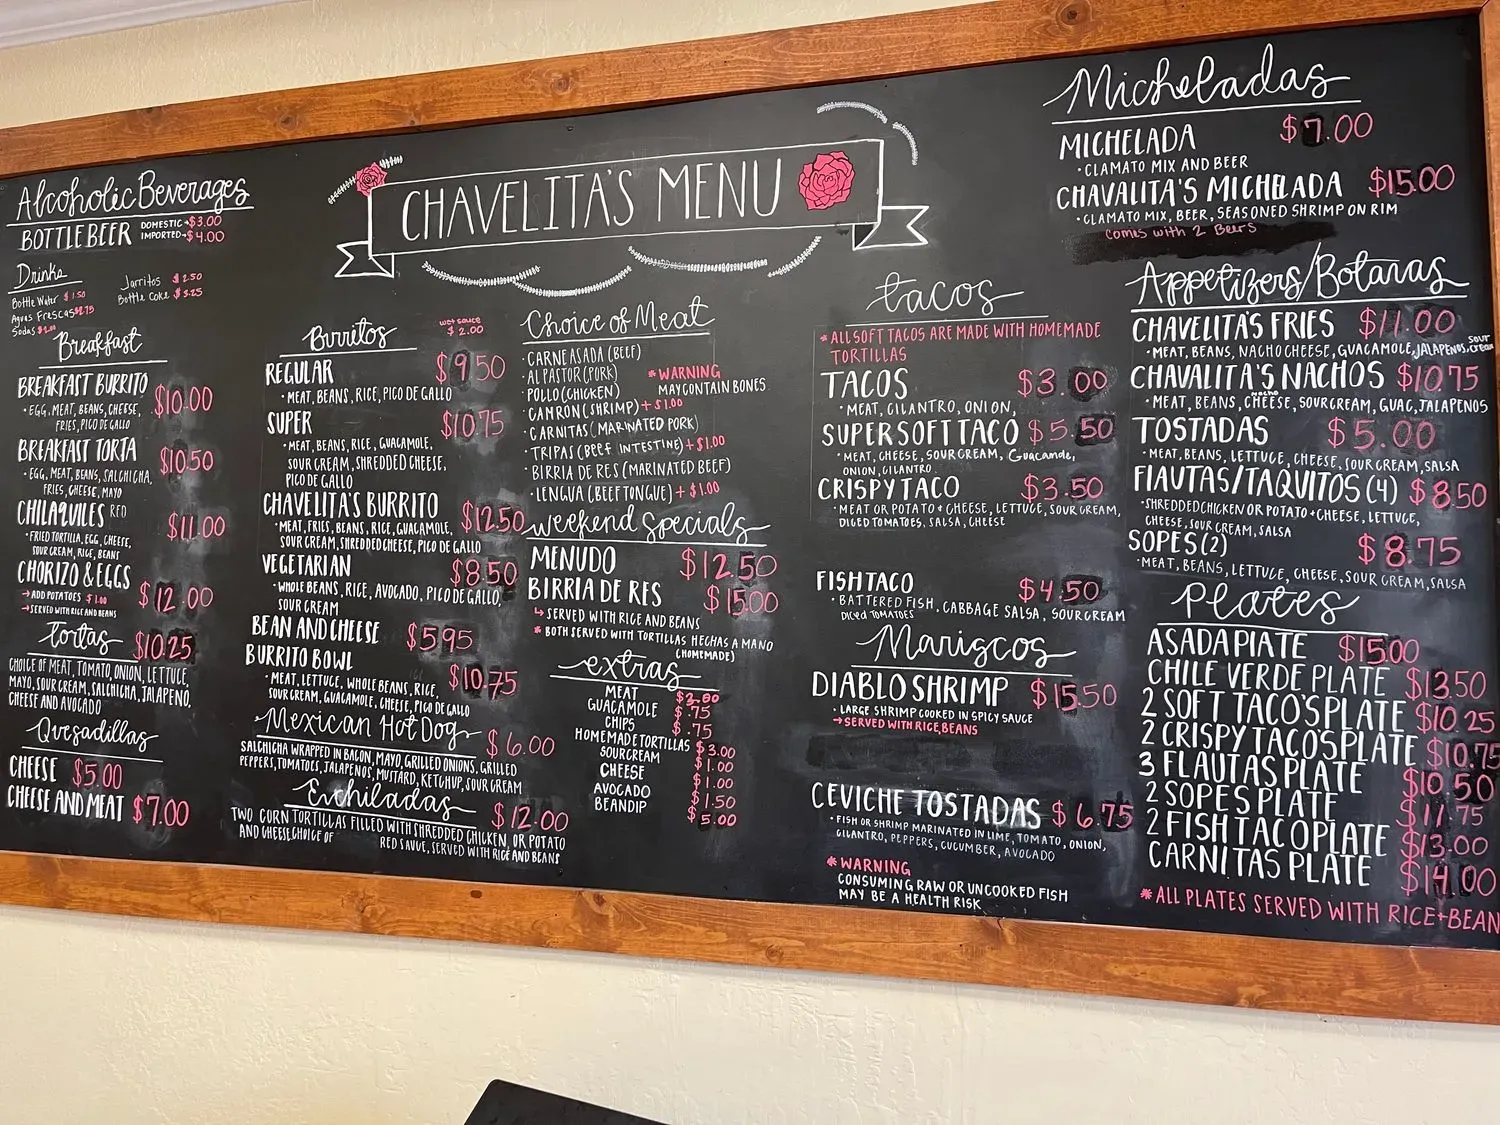 CHAVELITA'S MENU
Alcoholic Beverages
BOTTLE BEER DOMESTIC → $3.00
IMPORTED → $4.00
Drinks
Bottle Water $1.50
Aguas Frescas $2.75
Sodas
Jarritos $2.50
Bottle Coke $3.25
Breakfast
BREAKFAST BURRITO $10.00
• EGG, MEAT, BEANS, CHEESE,
FRIES, PICO DE GALLO
BREAKFAST TORTA $10.50
• EGG, MEAT, BEANS, SALCHICHA,
FRIES, CHEESE, MAYO
CHILAQUILES RED $11.00
• FRIED TORTILLA, EGG, CHEESE,
SOUR CREAM, RICE, BEANS
CHORIZO & EGGS $12.00
→ ADD POTATOES $1.00
→ SERVED WITH RICE AND BEANS
Tortas $10.25
CHOICE OF MEAT, TOMATO, ONION, LETTUCE,
MAYO, SOUR CREAM, SALCHICHA, JALAPENO,
CHEESE AND AVOCADO
Quesadillas
CHEESE $5.00
CHEESE AND MEAT $7.00
Burritos wet sauce
$2.00
REGULAR $9.50
• MEAT, BEANS, RICE, PICO DE GALLO
SUPER $10.75
• MEAT, BEANS, RICE, GUACAMOLE,
SOUR CREAM, SHREDDED CHEESE,
PICO DE GALLO
CHAVELITA'S BURRITO $12.50
• MEAT, FRIES, BEANS, RICE, GUACAMOLE,
SOUR CREAM, SHREDDED CHEESE, PICO DE GALLO
VEGETARIAN $8.50
• WHOLE BEANS, RICE, AVOCADO, PICO DE GALLO,
SOUR CREAM
BEAN AND CHEESE $5.95
BURRITO BOWL $10.75
• MEAT, LETTUCE, WHOLE BEANS, RICE,
SOUR CREAM, GUACAMOLE, CHEESE, PICO DE GALLO
Mexican Hot Dog $6.00
SALCHICHA WRAPPED IN BACON, MAYO, GRILLED ONIONS, GRILLED
PEPPERS, TOMATOES, JALAPENOS, MUSTARD, KETCHUP, SOUR CREAM
Enchiladas $12.00
TWO CORN TORTILLAS FILLED WITH SHREDDED CHICKEN, OR POTATO
AND CHEESE, CHOICE OF RED SAUVE, SERVED WITH RICE AND BEANS
Choice of Meat
• CARNE ASADA (BEEF)
• AL PASTOR (PORK)
• POLLO (CHICKEN)
• CAMRON (SHRIMP) + $1.00
• CARNITAS (MARINATED PORK)
• TRIPAS (BEEF INTESTINE) + $1.00
• BIRRIA DE RES (MARINATED BEEF)
• LENGUA (BEEF TONGUE) + $1.00
* WARNING
MAY CONTAIN BONES
Weekend Specials
MENUDO $12.50
BIRRIA DE RES $15.00
↳ SERVED WITH RICE AND BEANS
* BOTH SERVED WITH TORTILLAS HECHAS A MANO
(HOMEMADE)
extras
MEAT
GUACAMOLE $.75
CHIPS $.75
HOMEMADE TORTILLAS $3.00
SOUR CREAM $1.00
CHEESE $1.00
AVOCADO $1.50
BEAN DIP $5.00
tacos
* ALL SOFT TACOS ARE MADE WITH HOMEMADE
TORTILLAS
TACOS $3.00
• MEAT, CILANTRO, ONION,
SUPER SOFT TACO $5.50
• MEAT, CHEESE, SOUR CREAM,
ONION, CILANTRO
CRISPY TACO $3.50
• MEAT OR POTATO + CHEESE, LETTUCE, SOUR CREAM,
DICED TOMATOES, SALSA, CHEESE
FISH TACO $4.50
• BATTERED FISH, CABBAGE SALSA, SOUR CREAM
DICED TOMATOES
Mariscos
DIABLO SHRIMP $15.50
• LARGE SHRIMP COOKED IN SPICY SAUCE
→ SERVED WITH RICE, BEANS
CEVICHE TOSTADAS $6.75
• FISH OR SHRIMP MARINATED IN LIME, TOMATO, ONION,
CILANTRO, PEPPERS, CUCUMBER, AVOCADO
* WARNING
CONSUMING RAW OR UNCOOKED FISH
MAY BE A HEALTH RISK
Micheladas
MICHELADA $7.00
• CLAMATO MIX AND BEER
CHAVALITA'S MICHELADA $15.00
• CLAMATO MIX, BEER, SEASONED SHRIMP ON RIM
comes with 2 Beers
Appetizers/Botanas
CHAVELITA'S FRIES $11.00
• MEAT, BEANS, NACHO CHEESE, GUACAMOLE, JALAPENOS, sour cream
CHAVALITA'S NACHOS $10.75
• MEAT, BEANS, Nacho CHEESE, SOUR CREAM, GUAC, JALAPENOS
TOSTADAS $5.00
• MEAT, BEANS, LETTUCE, CHEESE, SOUR CREAM, SALSA
FLAUTAS/TAQUITOS (4) $8.50
• SHREDDED CHICKEN OR POTATO + CHEESE, LETTUCE,
CHEESE, SOUR CREAM, SALSA
SOPES (2) $8.75
• MEAT, BEANS, LETTUCE, CHEESE, SOUR CREAM, SALSA
Plates
ASADA PLATE $15.00
CHILE VERDE PLATE $13.50
2 SOFT TACO'S PLATE $10.25
2 CRISPY TACOS PLATE $10.75
3 FLAUTAS PLATE $10.50
2 SOPES PLATE $11.75
2 FISH TACO PLATE $13.00
CARNITAS PLATE $14.00
* ALL PLATES SERVED WITH RICE + BEAN